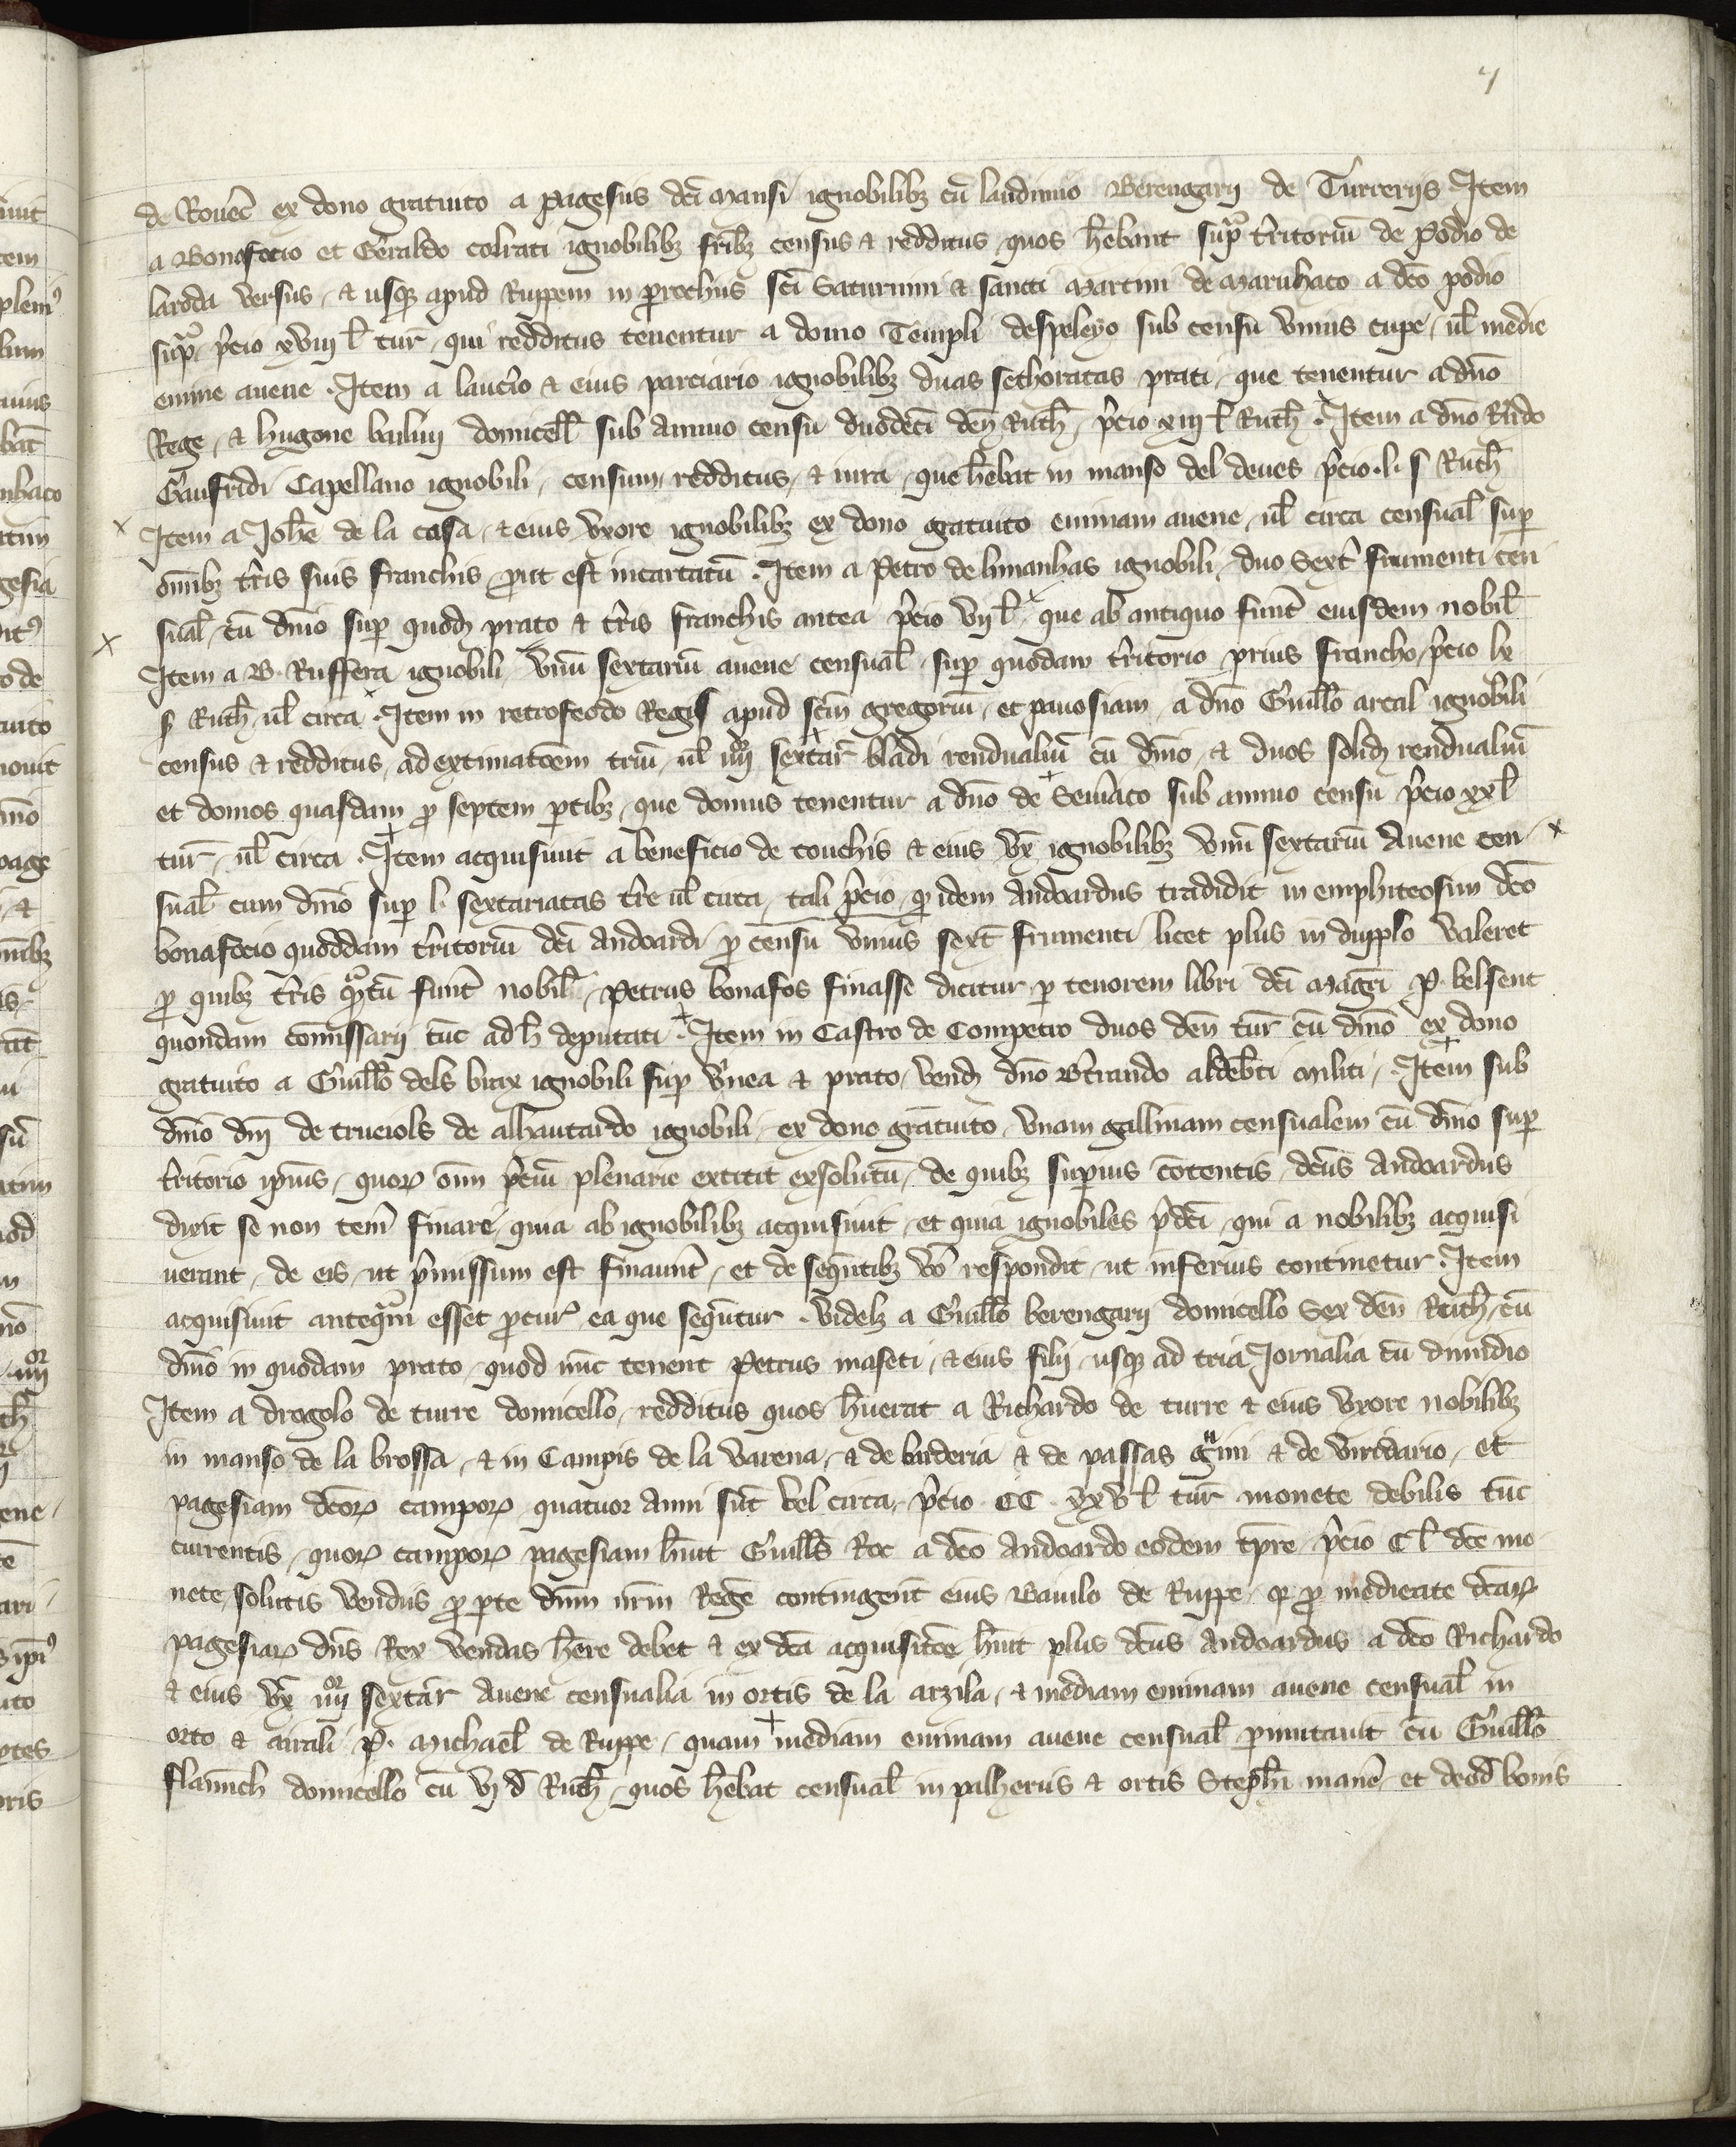 4
de Rouec̄ ex dono gratuito a pagesiis dc̄i mansi ignobilibꝫ cū laudimio Berengarij de Turrerijs Item
a Bonafocio et Geraldo colrati ignobilibꝫ fr̄ibꝫ census & redditus quos hēbant sup̄ t̄ritoriū de podio de
laroda versus, & usqꝫ apud Ruppem in ꝑrochiis sc̄i Saturnini & sancti martini de marnhaco a dc̄o podio
sup̄, p̄cio xviij l̄ tur̄, qui redditus tenentur a domo Templi despeleyo sub censu vnius cupe, ul̄ medie
emine auene . Item a laucio & eius parciario ignobilibꝫ duas sethoratas prati, que tenentur a dn̄o
Rege, & hugone balaij domicell̄ sub annuo censu duodecī den̄ Ruth̄, p̄cio xiij l̄ Ruth̄ . Item a dn̄o Rn̄do
Gaufridi Capellano ignobili, censum, redditus, & iura, que hēbat in manso del deues p̄cio .l. s̄ Ruth̄
Item a Joh̄e de la casa, & eius vxore ignobilibꝫ ex dono gratuito eminam auene, ul̄ circa censual̄ sup̄
om̄ibꝫ t̄ris suis franchis, ꝓut est incartatū . Item a Petro de limanhas ignobili, duo Sext̄ frumenti cen
sual̄, cū dn̄io sup̄ quodꝫ prato & t̄ris franchis antea p̄cio vij l̄, que ab antiquo fuer̄t eiusdem nobil̄
Item a B. Ruffera ignobili, vnū sextariū auene censual̄, sup̄ quodam t̄ritorio prius francho, p̄cio lx
s̄ Ruth̄ ul̄ circa . Item in retrofeodo Regis apud sc̄m gregoriū, et pauosiam, a dn̄o Guill̄o arcal ignobili
census & redditus, ad extimatōem triū, ul̄ iiijor sextar̄ bladi rendualiū cū dn̄io, & duos solidꝫ rendualiū
et domos quasdam ꝓ septem ꝑtibꝫ, que domus tenentur a dn̄o de Seuīaco sub annuo censu p̄cio xx l̄
tur̄, ul̄ circa . Item acquisiuit a beneficio de couchis & eius vx̄ ignobilibꝫ vnū sextariū Auene cen
sual̄ cum dn̄io sup̄ l. sextariatas t̄re ul̄ circa, tali p̄cio, qꝫ idem Andoardus tradidit in emphiteosim dc̄o
bonafocio quoddam t̄ritoriū dc̄i Andoardi, ꝓ censu vnius sext̄ frumenti licet plus in dupplo valeret
ꝓ quibꝫ t̄ris qn̄tū fuer̄t nobil̄, Petrus bonafos finasse dicitur ꝑ tenorem libri dc̄i maḡri P. belsent
quondam com̄issarij tūc ad h̄ deputati . Item in Castro de Competro duos den̄ tur̄ cū dn̄io ex dono
gratuito a Guill̄o dels birix ignobili sup̄ vinea & prato, vendꝫ dn̄o Bt̄rando aldeb̄ti militi, . Item sub
dn̄io dn̄j de trueiols de alhautardo ignobili, ex dono gratuito, vnam gallinam censualem cū dn̄io sup̄
t̄ritorio ipius, quoꝝ om̄ p̄ciū plenarie extitit exsolutū, de quibꝫ sup̄ius cōtentis, dc̄us Andoardus
dixit se non tenēi finare, quia ab ignobilibꝫ acquisiuit, et quia ignobiles p̄dc̄i, qui a nobilibꝫ acquisi
uerant, de eis, ut p̄missum est finauer̄t, et de seqūntibꝫ v̄o respondit, ut inferius continetur . Item
acquisiuit anteqͣm esset ꝓcur̄ ea que seqūntur . videlꝫ a Guill̄o berengarij domicello Sex den̄ Ruth̄, cū
dn̄io in quodam prato, quod nūc tenent Petrus maseti, & eius filij, usqꝫ ad tria Jornalia cū dimidio
Item a drogolo de turre domicello, redditus quos hūerat a Richardo de turre & eius vxore nobilibꝫ
in manso de la brossa, & in Campis de la varena, & de burderia & de passas gͣini & de viridario, et
pagesiam dc̄oꝝ campoꝝ quatuor anni sūt vel circa, p̄cio CC. xxv l̄ tur̄ monete debilis tūc
currentis, quoꝝ campoꝝ pagesiam hūit Guill̄s Roc a dc̄o Andoardo eodem tp̄re, p̄cio C l̄ dc̄e mo
nete, solutis vendis ꝓ ꝑte dn̄m nr̄m Regē contingent̄ eius Baiulo de Ruppe, qꝫ ꝓ medietate dc̄aꝝ
pagesiaꝝ dn̄s Rex vendas hēre debet & ex dc̄a acquisit̄oe hūit plus dc̄us Andoardus a dc̄o Richardo
& eius vx̄ iiijor sextar̄ Auene censualia in ortis de la arzila, & mediam eminam auene censual̄ in
orto & airali P. michael̄ de Ruppe, quam mediam eminam auene censual̄ ꝑmutauit cū Guill̄o
flam̄ch domicello cū vj d̄ Ruth̄, quos hēbat censual̄ in palheriis & ortis Steph̄i mane, et deod̄ bonis